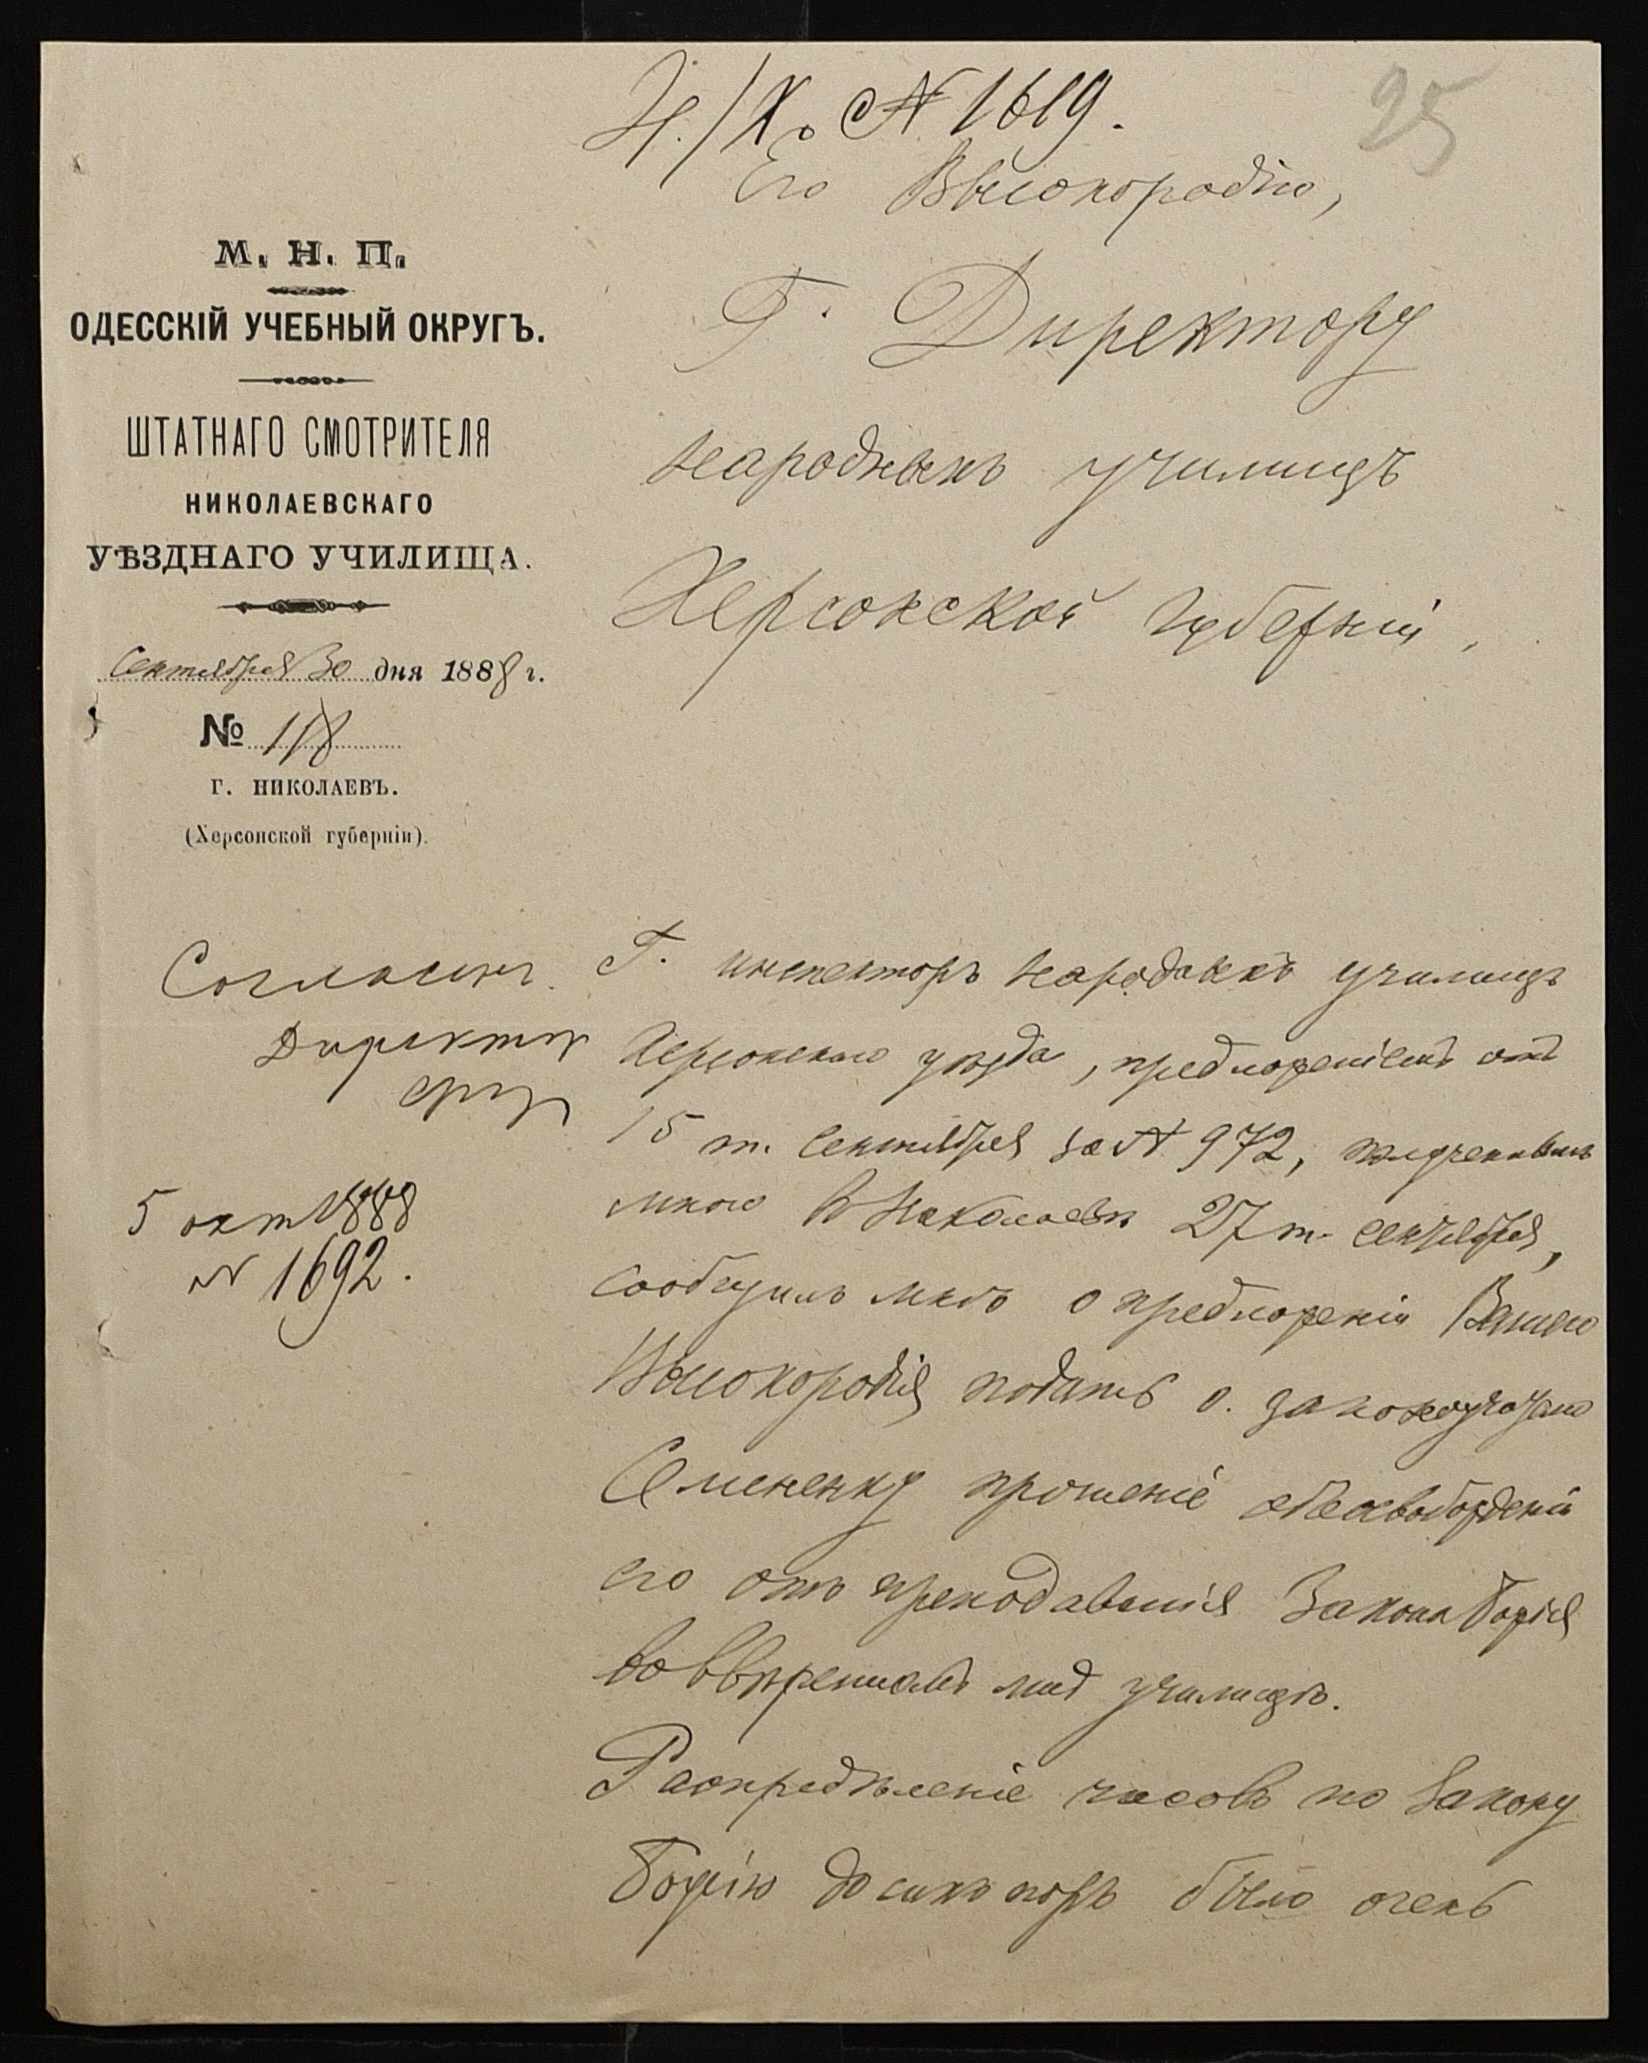 4./X. № 1619.
25
Его Высокородію,
М. Н. П.
ОДЕССКІЙ УЧЕБНЫЙ ОКРУГЪ.
ШТАТНАГО СМОТРИТЕЛЯ
НИКОЛАЕВСКАГО
УѢЗДНАГО УЧИЛИЩА.
Сентября 30 дня 1888 г.
№ 118
Г. НИКОЛАЕВЪ.
(Херсонской губерніи).
Г. Директору
народныхъ училищъ
Херсонской губерніи,
Согласенъ.
Директор
5 окт 1888
№ 1692.
Г. инспекторъ народныхъ училищъ
Херсонскаго уѣзда, предложеніемъ отъ
15 т. сентября за № 972, полученнымъ
мною въ Николаевѣ 27 т. сентября,
сообщилъ мнѣ о предложеніи Вашего
Высокородія подать о. законоучителю
Семененку прошеніе объ освобожденіи
его отъ преподаванія Закона Божія
во ввѣренномъ мнѣ училищѣ.
Распредѣленіе часовъ по Закону
Божію до сихъ поръ было очень